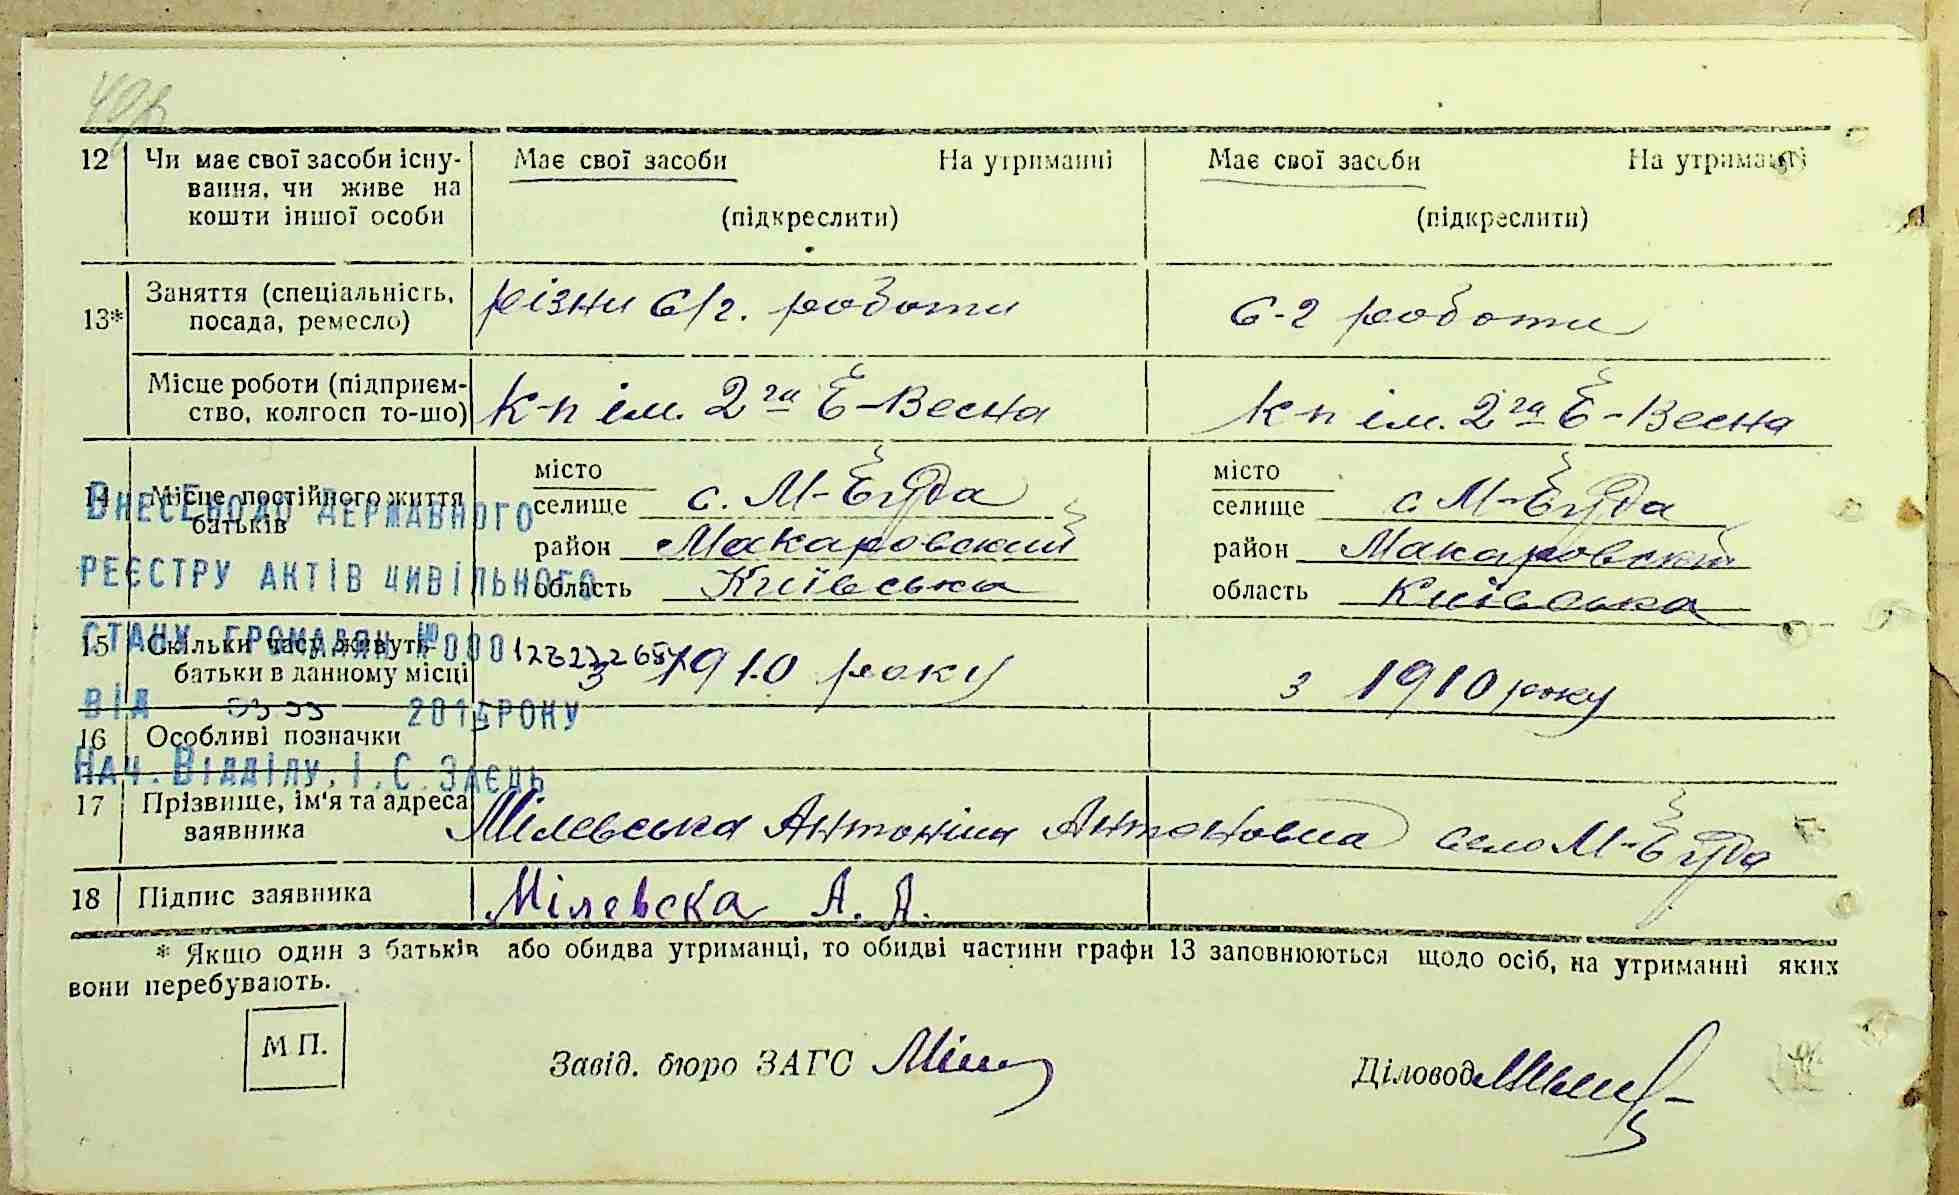 12 Чи має свої засоби існу- Має свої засоби На утриманні Має свої засоби На утриманні
вання, чи живе на
кошти іншої особи (підкреслити) (підкреслити)
13* Заняття (спеціальність, різни с/г. роботи с-г роботи
посада, ремесло)
Місце роботи (підприєм- к-п ім. 2га Б-Весна к-п ім. 2га Б-Весна
ство, колгосп то-що)
14 Місце постійного життя місто місто
батьків селище с. М-Буда селище с. М-Буда
район Макаровский район Макаровский
область Київська область Київська
ВНЕСЕНО ДО ДЕРЖАВНОГО
РЕЄСТРУ АКТІВ ЦИВІЛЬНОГО
СТАНУ ГРОМАДЯН №000
ВІД 201 РОКУ
НАЧ. ВІДДІЛУ, І.С. ЗАЄЦЬ
15 Скільки часу живуть з 1910 року з 1910 року
батьки в данному місці
16 Особливі позначки
17 Прізвище, ім'я та адреса Мілевська Антоніна Антоновна село М-Буда
заявника
18 Підпис заявника Мілевска А. А.
* Якщо один з батьків або обидва утриманці, то обидві частини графи 13 заповнюються щодо осіб, на утриманні яких
вони перебувають.
М П.
Завід. бюро ЗАГС Діловод